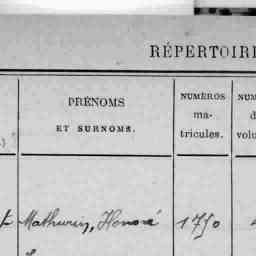 RÉPERTOIRE
PRÉNOMS
ET SURNOMS.
NUMÉROS
ma-
tricules.
NUM
d
volu
Mathurin, Honoré
1750